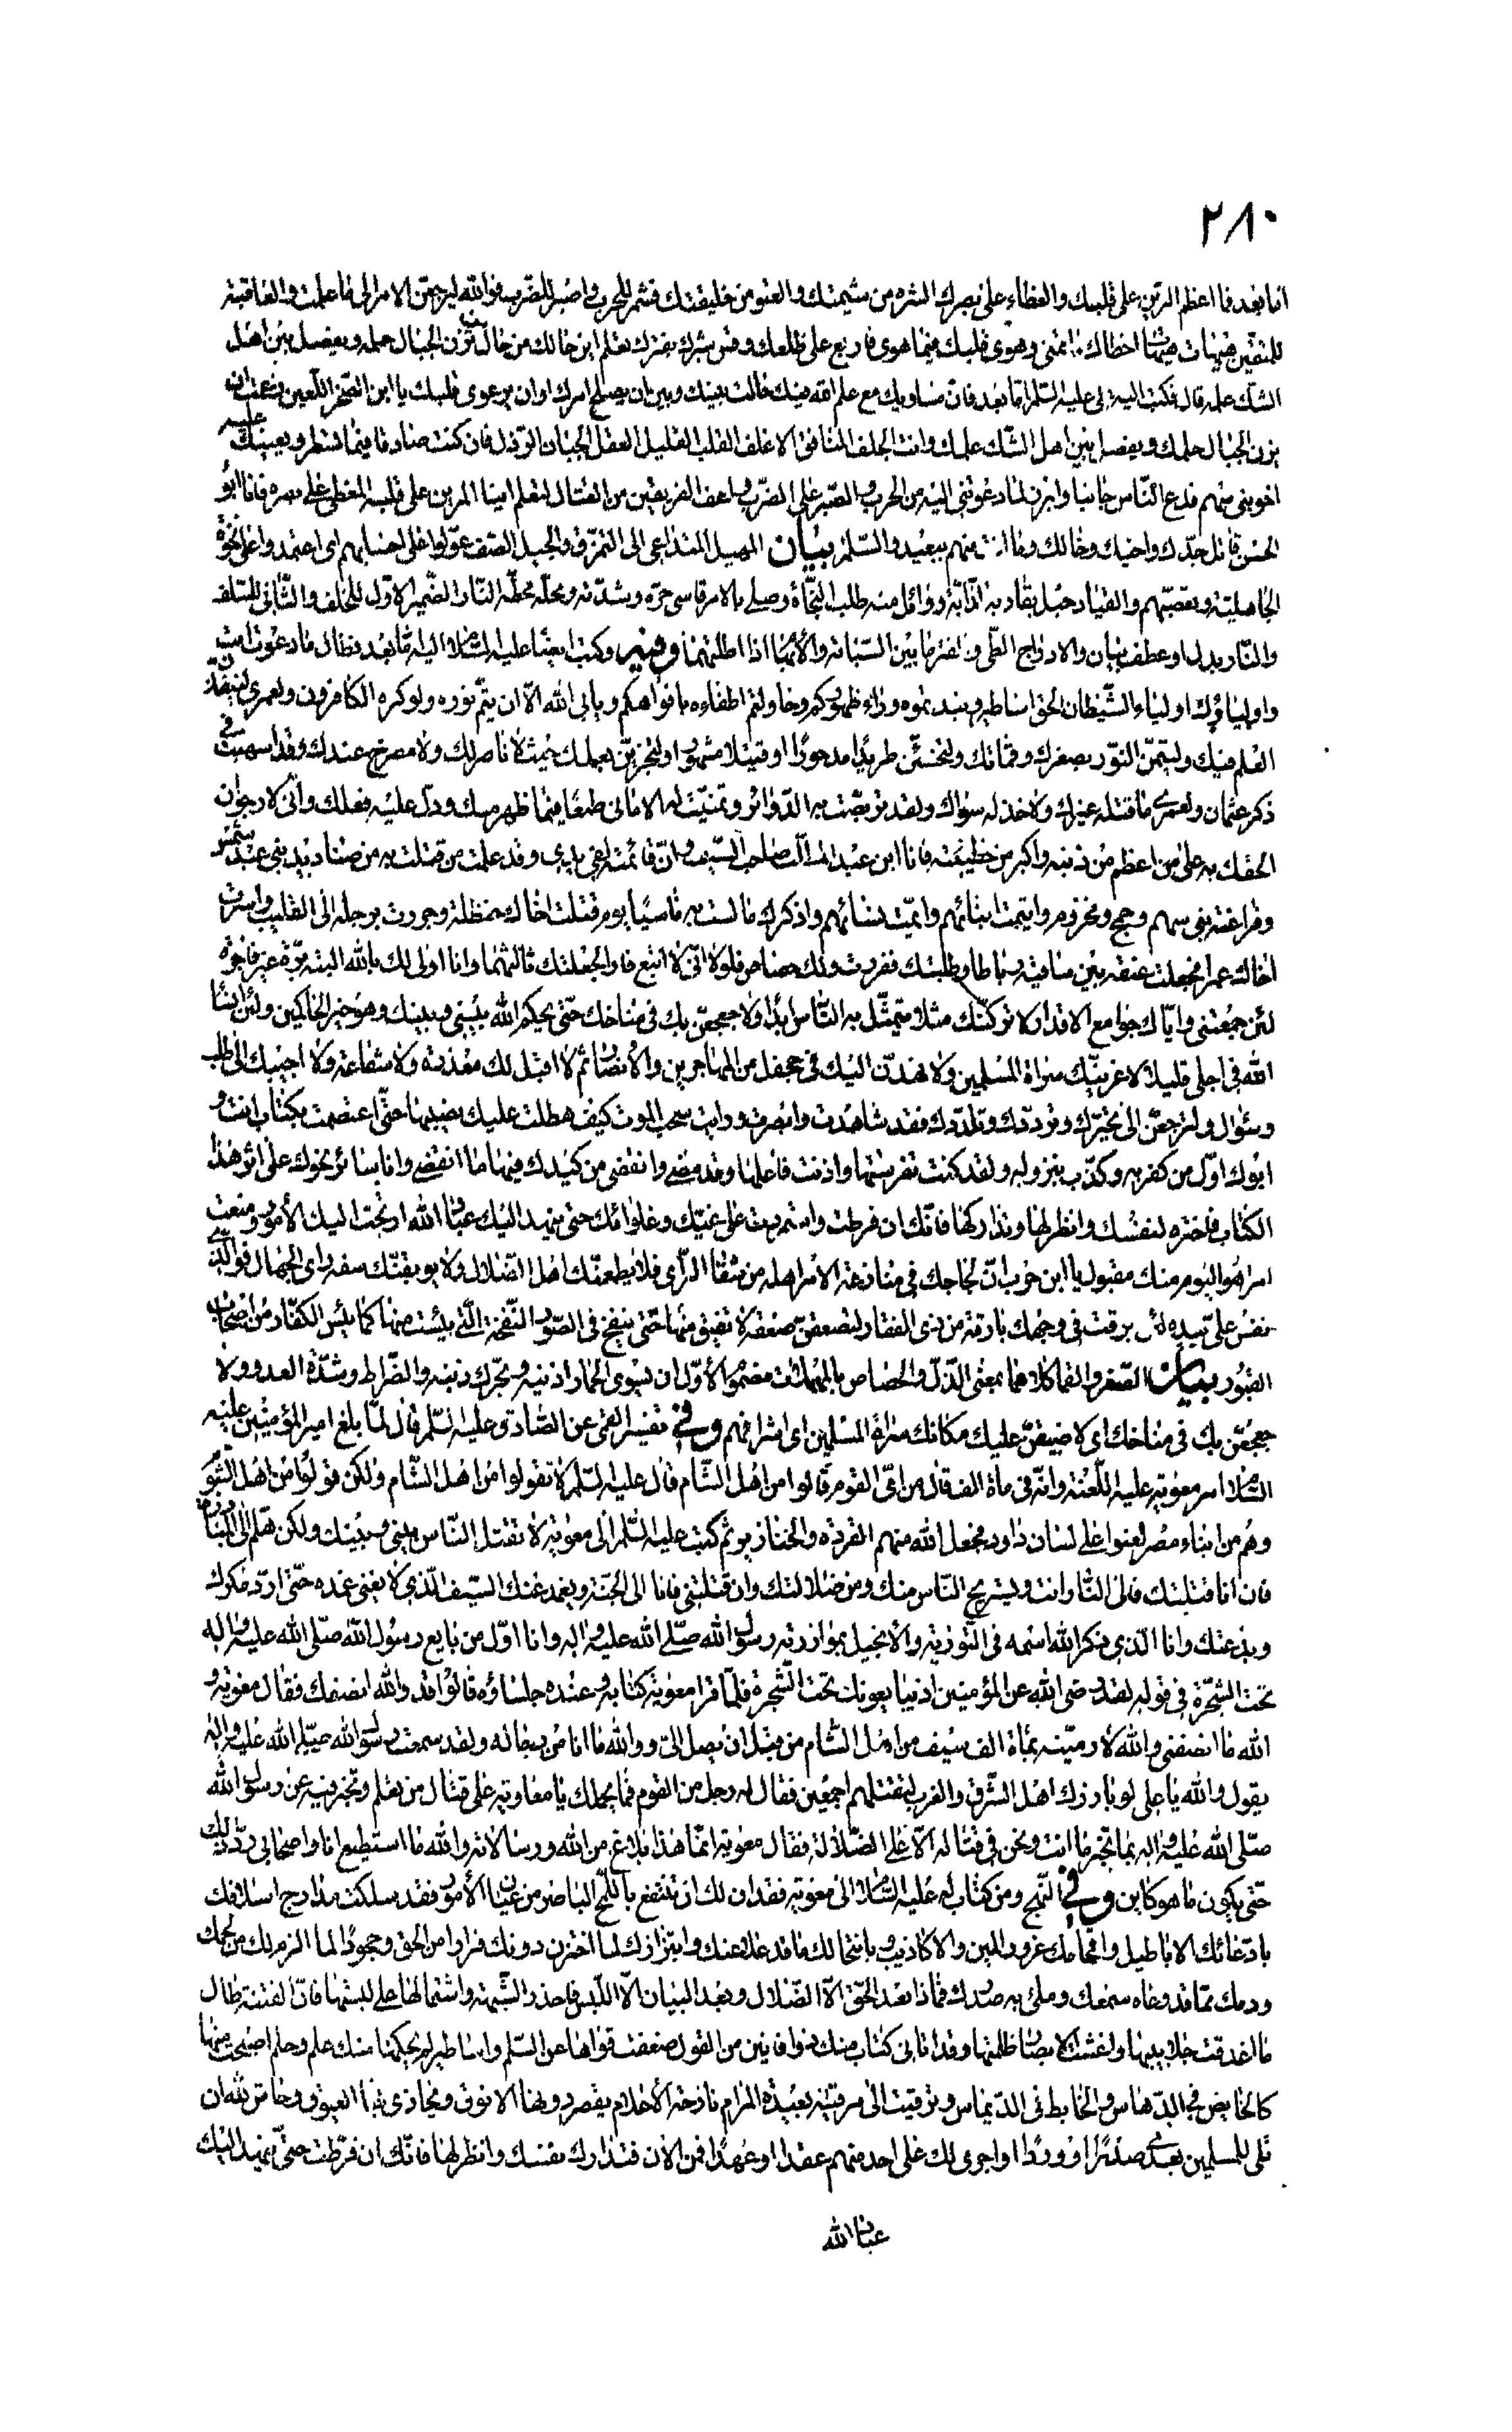 ٢٨٠
اما بعد فما اعظم الرين على قلبك والغطاء على بصرك الشره من شيمتك والعتو من خليقتك فشمر للحرب واصبر للضرب فوالله ليرجعن الامر الى ما علمت والعاقبة
للمتقين هيهات هيهات اخطاك ما تمنى وهوى قلبك فيما هوى فاربع على ظلعك وقس شبرك بفترك تعلم اين حالك من حال من تزن الجبال حلمه ويفصل بين اهل
الشك علمه قال فكتب اليه علي عليه السلم اما بعد فان مساويك مع علم الله فيك حالت بينك وبين ان يصلح امرك اوان يرعوى قلبك يا ابن الصخر اللعين زعمت ان
يزن الجبال حلمك ويفصل بين اهل الشك علمك وانت الجلف المنافق الاغلف القلب القليل العقل الجبان الرذل فان كنت صادقا فيما تسطر ويعينك عليه
اخو بنى سهم فدع الناس جانبا وابرز لما دعوتنى اليه من الحرب والصبر على الضرب واعف الفريقين من القتال لتعلم اينا المرين على قلبه المغطى على بصره فانا ابو
الحسن قاتل جدك واخيك وخالك وما انت منهم ببعيد والسلم بيان المهيل المتداعى الى التمزق والجبل الصف عولوا على احسابهم اى اعتمدوا على نخوة
الجاهلية وتعصبهم والقياد حبل يقاد به الدابة ووائل منه طلب النجاة وصلى بالامر قاسى حره وشدته ومحله محطه النار الضمير الاول للخلف والثانى للسلف
والنار بدل او عطف بيان والادراج الطى والفتر ما بين السبابة والابهام اذا اطلقتهما وفيه وكتب ايضا عليه السلام اليه اما بعد فطال ما دعوت انت
واولياؤك اولياء الشيطان الحق اساطير ونبذتموه وراء ظهوركم وحاولتم اطفاءه بافواهكم ويابى الله الا ان يتم نوره ولو كره الكافرون ولعمرى لينفذن
العلم فيك وليتمن النور بصغرك وقمائك ولتخسئن طريدا مدحورا او قتيلا مثبورا ولتجزين بعملك حيث لا ناصر لك ولا مصرخ عندك وقد اسهبت فى
ذكر عثمان ولعمرى ما قتله غيرك ولا خذله سواك ولقد تربصت به الدوائر وتمنيت له الامانى طمعا فيما ظهر منك ودل عليه فعلك وانى لارجو ان
الحقك به على من اعظم من ذنبه واكبر من خطيئته فانا ابن عبد المطلب صاحب السيف وان قائمته لفى يدى وقد علمت من قتلت به من صناديد بنى عبد شمس
وفراعنة بنى سهم وجمح ومخزوم وايتمت ابنائهم وايمت نسائهم واذكرك ما لست به ناسيا يوم قتلت اخاك حنظلة وجررت برجله الى القليب واسرت
اخاك عمرا فجعلت عنقه بين ساقيه رباطا وطلبتك ففررت ولك حصاص فلولا انى لا اتبع فارا لجعلتك ثالثهما وانا اولى لك بالله الية برة غير فاجرة
لئن جمعتنى واياك جوامع الاقدار لاتركنك مثلا يتمثل به الناس ابدا ولاجعجعن بك فى مناخك حتى يحكم الله بينى وبينك وهو خير الحاكمين ولئن انسا
الله فى اجلى قليلا لاغزينك سراة المسلمين ولانهدن اليك فى جحفل من المهاجرين والانصار ثم لا اقبل لك معذرة ولا شفاعة ولا اجيبك الى طلب
وسؤال ولترجعن الى تحيرك وترددك وتلددك فقد شاهدت وابصرت ورايت سحب الموت كيف هطلت عليك بصيبها حتى اعتصمت بكتاب انت و
ابوك اول من كفر به وكذب بنزوله ولقد كنت تفرستها واذنت فاعلها وقد مضى وانقضى من كيدك فيها ما انقضى وانا سائر نحوك على اثر هذا
الكتاب فاختر لنفسك وانظر لها وتداركها فانك ان فرطت واستمررت على غيك وغلوائك حتى ينهد اليك عباد الله ارتجت اليك الامور ومنعت
امرا هو اليوم منك مقبول يا ابن حرب ان لجاجك فى منازعة الامر اهله من سفاه الراى فلا يطمعنك اهل الضلال ولا يوبقنك سفه راى الجهال فوالذى
نفس على بيده لئن برقت فى وجهك بارقة من ذى الفقار لتصعقن صعقة لا تفيق منها حتى ينفخ فى الصور النفخة التى يئست منها كما يئس الكفار من اصحاب
القبور بيان الصغر والقما كلاهما بمعنى الذل والحصاص بالمهملات مضموم الاول ان يسوى الحمار اذنيه ويحرك ذنبه والضراط وشدة العدو ولا
جعجعن بك فى مناخك اى لاضيقن عليك مكانك سراة المسلمين اى اشرافهم وفى تفسير القمى عن الصادق عليه السلم قال لما بلغ امير المؤمنين عليه
السلام امر معوية عليه اللعنة وانه فى ماة الف قال من اى القوم قالوا من اهل الشام قال عليه السلم لا تقولوا من اهل الشام ولكن قولوا من اهل الشوم
وهم من ابناء مصر لعنوا على لسان داود فجعل الله منهم القردة والخنازير ثم كتب عليه السلم الى معوية لا تقتل الناس بينى وبينك ولكن هلم الى المبارزة
فان انا قتلتك فالى النار انت ويستريح الناس منك ومن ضلالتك وان قتلتنى فانا الى الجنة ويغمد عنك السيف الذى لا يغنى غمده حتى ارد مكرك
وبدعتك وانا الذى ذكر الله اسمه فى التوراة والانجيل بموازرة رسول الله صلى الله عليه واله وانا اول من بايع رسول الله صلى الله عليه واله
تحت الشجرة فى قوله لقد رضى الله عن المؤمنين اذ يبايعونك تحت الشجرة فلما قرا معوية كتابه وعنده جلساؤه قالوا قد والله انصفك فقال معوية و
الله ما انصفنى والله لارمينه بماة الف سيف من اهل الشام من قبل ان يصل الى ووالله ما انا من رجاله ولقد سمعت رسول الله صلى الله عليه واله
يقول والله يا على لو بارزك اهل الشرق والغرب لقتلتهم اجمعين فقال له رجل من القوم فما يحملك يا معاوية على قتال من تعلم وتخبر فيه عن رسول الله
صلى الله عليه واله بما تخبر ما انت ونحن فى قتاله الا على الضلالة فقال معوية انما هذا بلاغ من الله ورسالاته والله ما استطيع انا واصحابى رد ذلك
حتى يكون ما هو كاين وفى النهج ومن كتاب له عليه السلام الى معوية فقد ان لك ان تنتفع باللمح الباصر من عيان الامور فقد سلكت مدارج اسلافك
بادعائك الاباطيل واقحامك غرور المين والاكاذيب وبانتحالك ما قد علا عنك وابتزازك لما اختزن دونك فرارا من الحق وجحودا لما الزم لك من لحمك
ودمك مما قد وعاه سمعك وملئ به صدرك فماذا بعد الحق الا الضلال وبعد البيان الا اللبس فاحذر الشبهة واشتمالها على لبستها فان الفتنة طال
ما اغدقت جلابيبها واغشت الابصار ظلمتها وقد اتانى كتاب منك ذو افانين من القول ضعفت قواها عن السلم واساطير لم يحكها منك علم وحلم اصبحت منها
كالخايض فى الدهاس والخابط فى الديماس وترقيت الى مرقبة بعيدة المرام نازحة الاعلام يقصر دونها الانوق ويحاذى بها العيوق وحاش لله ان
تلى للمسلمين بعدى صدرا او وردا او اجرى لك على احد منهم عقدا او عهدا فمن الان فتدارك نفسك وانظر لها فانك ان فرطت حتى ينهد اليك
عباد الله